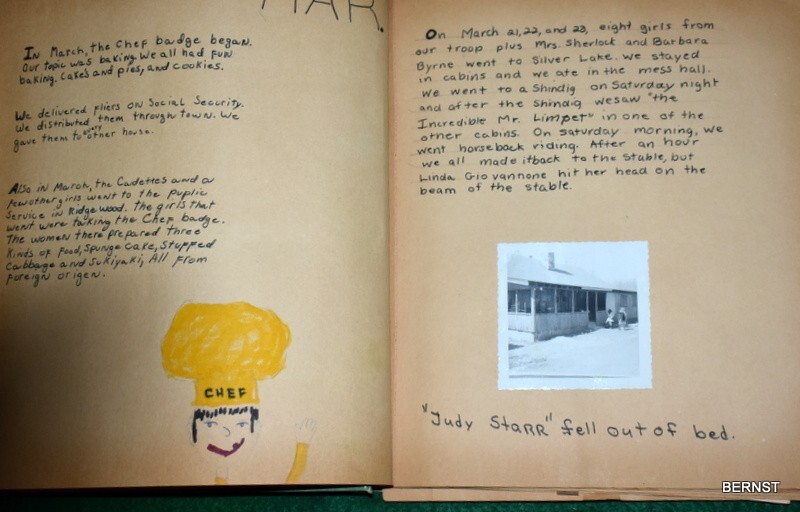 MAR.
In March, the Chef badge began.
Our topic was baking. We all had fun
baking. Cakes and pies, and cookies.
We delivered fliers on Social Security.
We distributed them through town. We
gave them to every other house.
Also in March, the Cadettes and a
few other girls went to the puplic
Service in Ridgewood. The girls that
went were taking the Chef badge.
The women there prepared three
kinds of food, Spunge cake, Stuffed
Cabbage and Sukiyaki, All from
foreign origen.
CHEF
On March 21, 22, and 23, eight girls from
our troop plus Mrs. Sherlock and Barbara
Byrne went to Silver Lake. We stayed
in cabins and we ate in the mess hall.
We went to a Shindig on Saturday night
and after the Shindig we saw "the
Incredible Mr. Limpet" in one of the
other cabins. On saturday morning, we
went horseback riding. After an hour
we all made it back to the stable, but
Linda Giovannone hit her head on the
beam of the stable.
"Judy Starr" fell out of bed.
BERNST